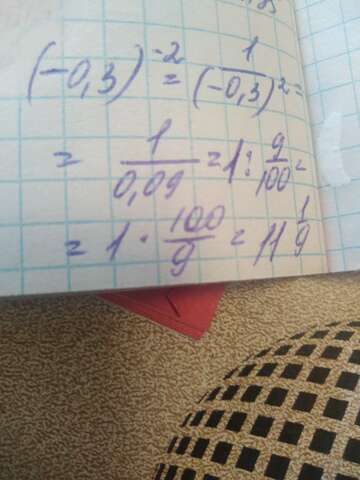 (-0,3)^-2 = 1/(-0,3)^2 =
= 1/0,09 = 1 : 9/100 =
= 1 · 100/9 = 11 1/9